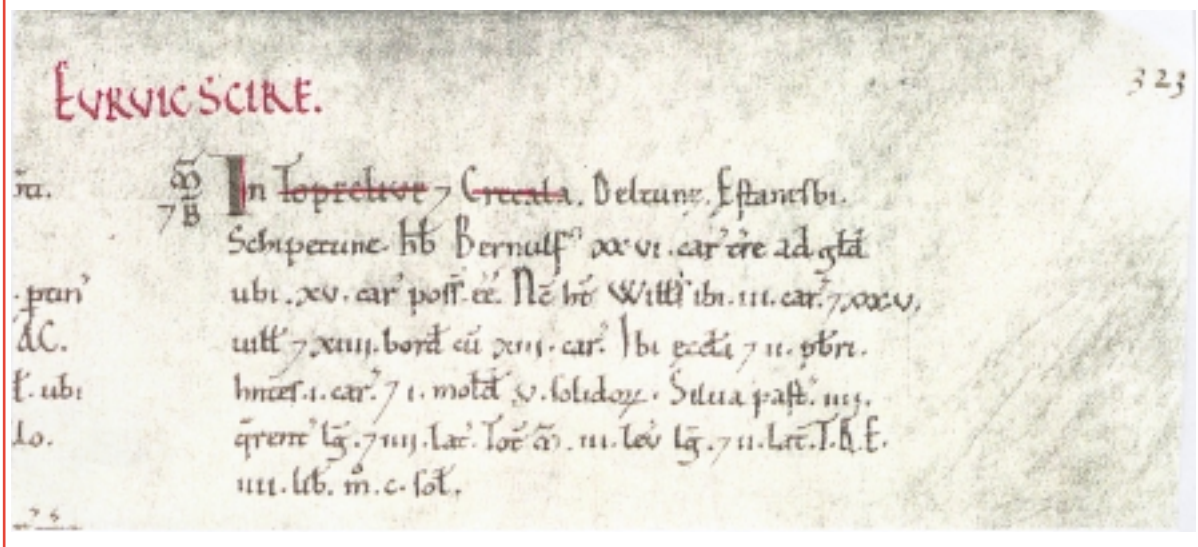 EVRVIC SCIRE.
323
M̃. In Topeclive 7 Crecala. Deltune. Estanesbi.
7 B̃ Schipetune. hb̃ Bernulf' xxvi. car' tr̃e ad gld̃
. pan' ubi. xv. car' poss̃. ẽe. Nc̃ ht̃ Wills̃ ibi. iii. car'. 7 xxxv.
AC. uilł 7 xiiii. bord̃ cũ xiii. car'. Ibi æccłi 7 ii. pb̃ri.
ł. ubi hñtes. i. car'. 7 i. mold̃ v. solidoꝝ. Silua past̃'. iiii.
lo. q̃rent' lg̃. 7 iiii. lat'. Tot̃ m̃. iii. leu' lg̃. 7 ii. lat̃. T.R.E.
iiii. lib̃. m̊. c. soł.